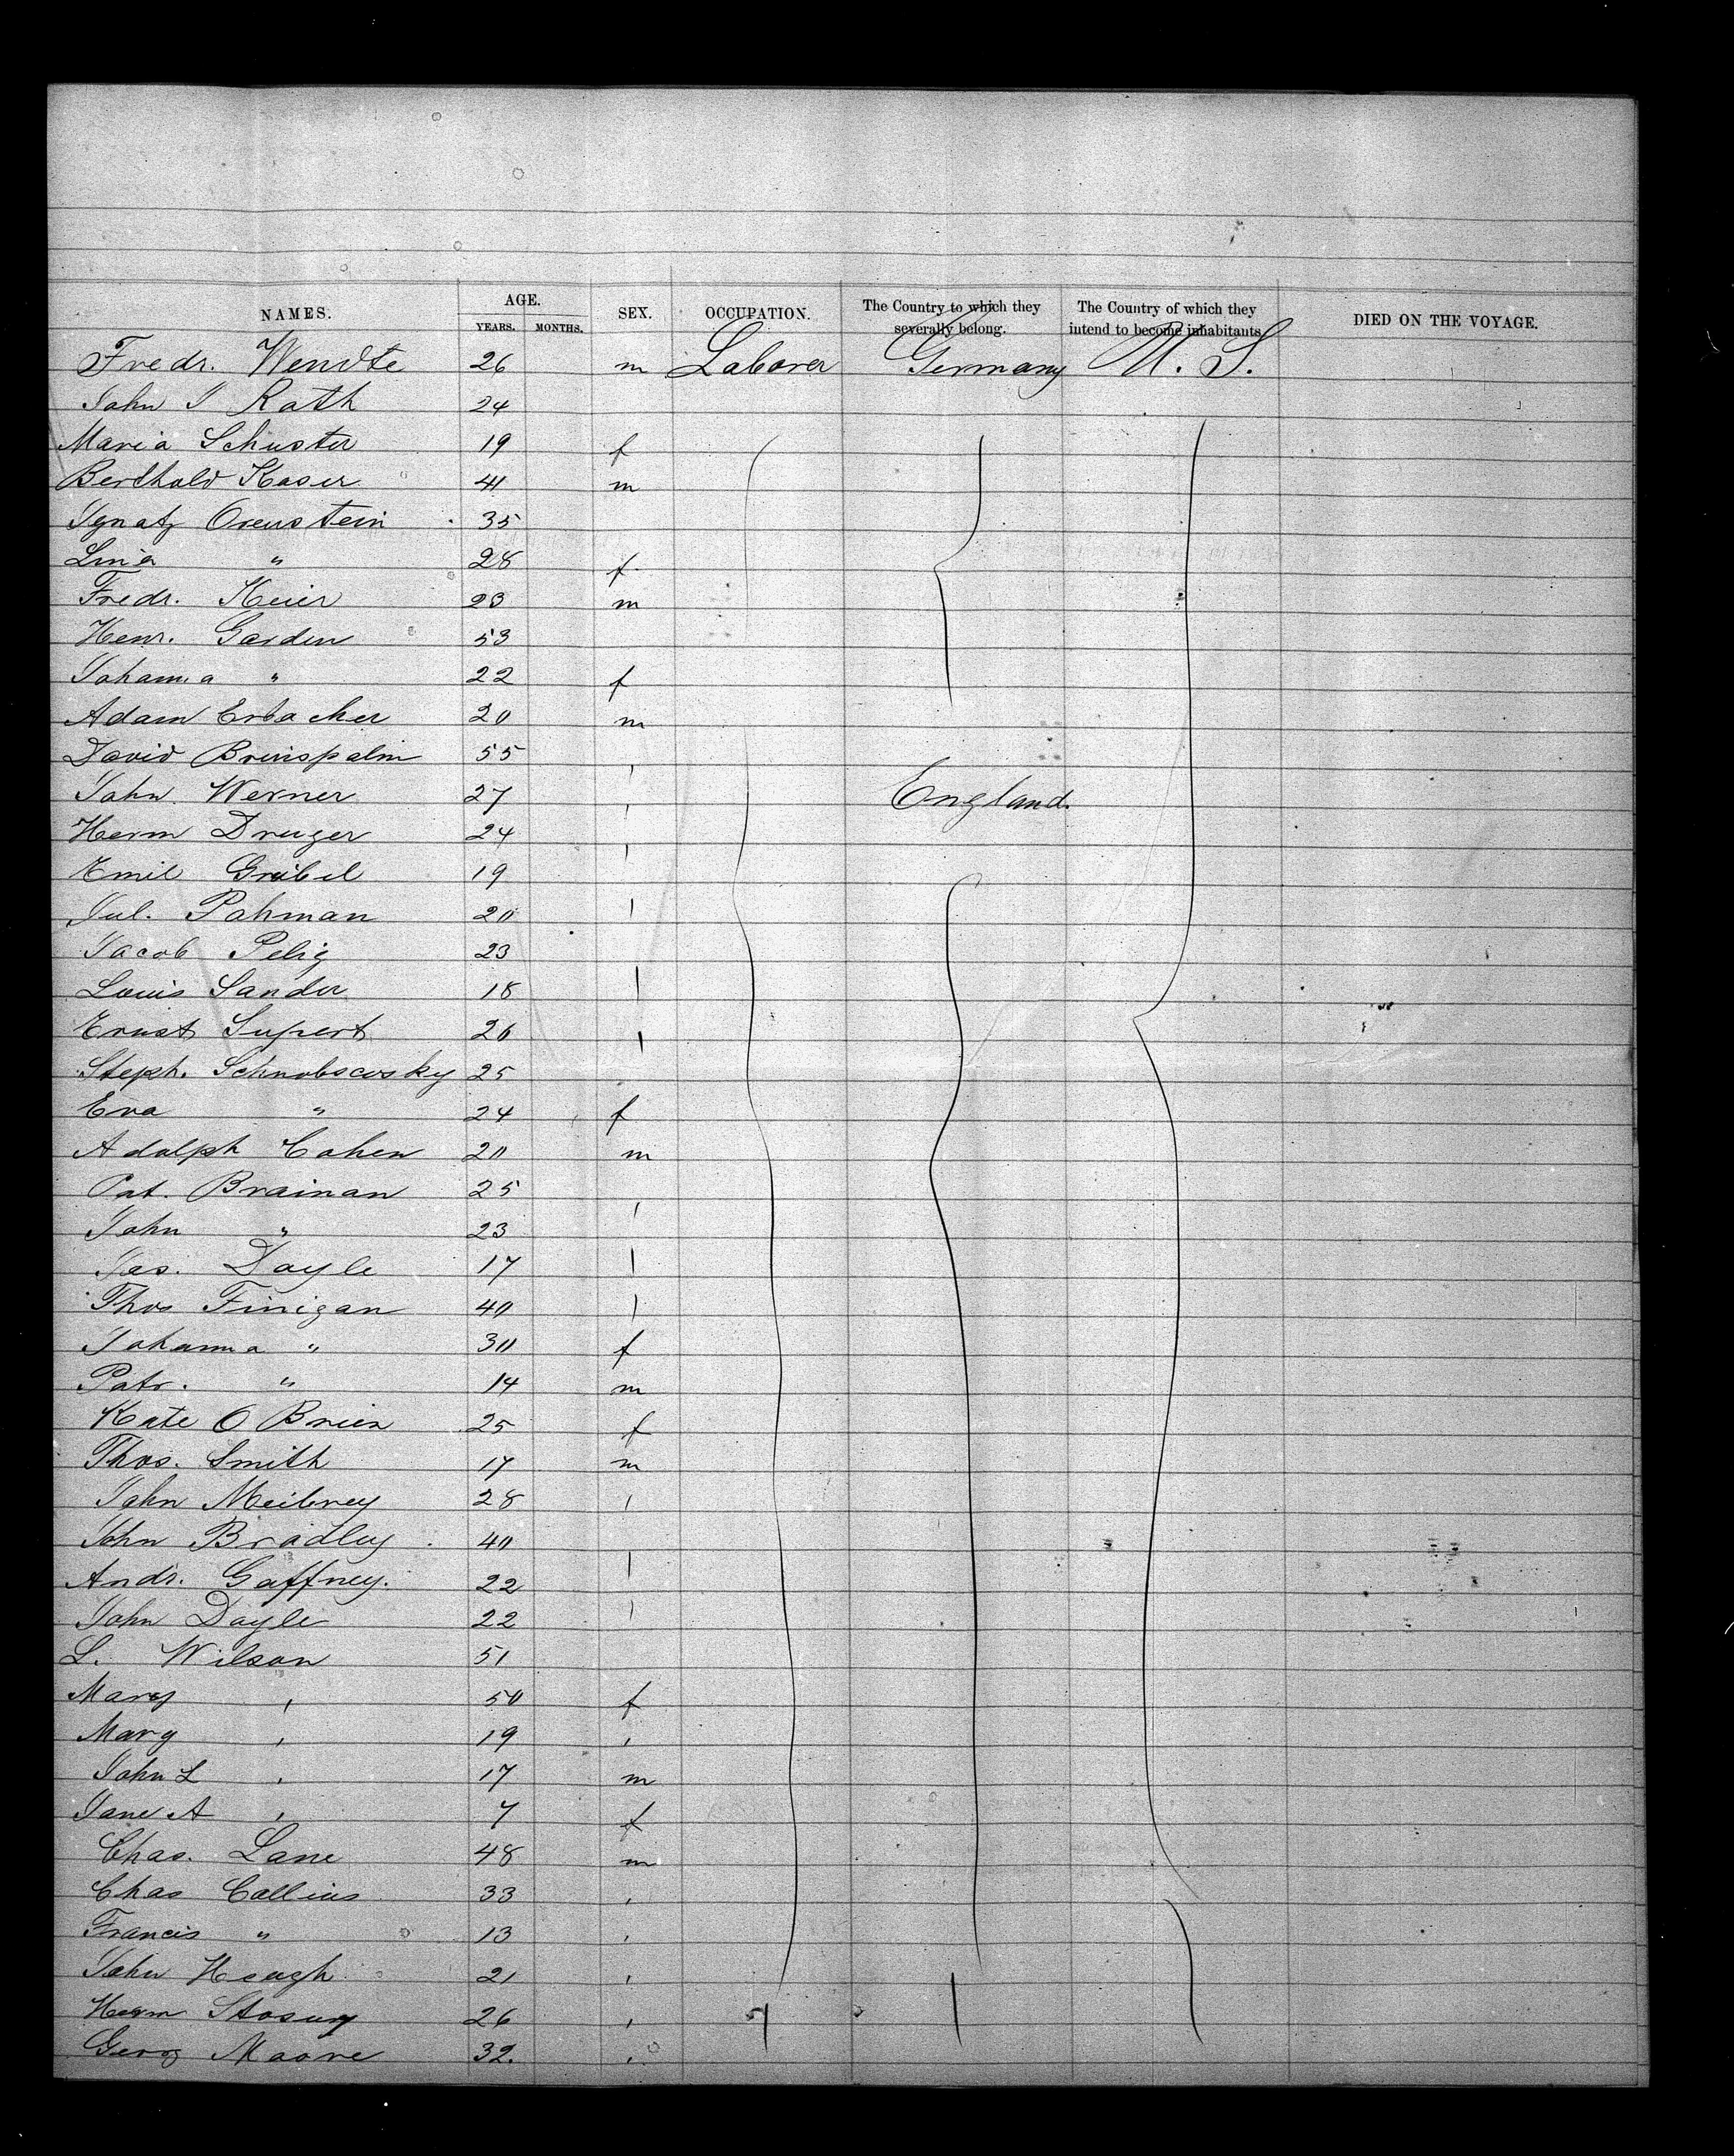 NAMES. AGE. SEX. OCCUPATION. The Country to which they severally belong. The Country of which they intend to become inhabitants DIED ON THE VOYAGE.
YEARS. MONTHS.
Fredr. Wendte 26 m Laborer Germany U. S.
John J Rath 24
Maria Schuster 19 f
Berthold Kaser 41 m
Ignatz Orenstein 35
Lina " 28 f
Fredr. Heier 23 m
Henr. Garden 53
Johanna " 22 f
Adam Erbacher 20 m
David 55 '
John Werner 27 ' England.
Herm Druger 24 '
Emil Grübel 19
Jul. Pahman 20 '
Jacob Pelig 23
Louis Sander 18 '
Ernst Supert 26 '
Steph. 25
Eva " 24 f
Adolph Cohen 20 m
Pat. Brainan 25 '
John " 23
Jas. Dayle 17 '
Thos Finigan 40 '
Johanna " 30 f
Patr. " 14 m
Kate O Brien 25 f
Thos. Smith 17 m
John 28 '
John Bradley 40
Andr. Gaffney. 22 '
John Dayle 22 '
L. Wilson 51
Mary ' 50 f
Mary ' 19 '
John L ' 17 m
Jane A ' 7 f
Chas. Lane 48 m
Chas Collins 33 '
Francis " 13 '
John Heagh 21 '
Herm 26 '
Georg Moore 32. '